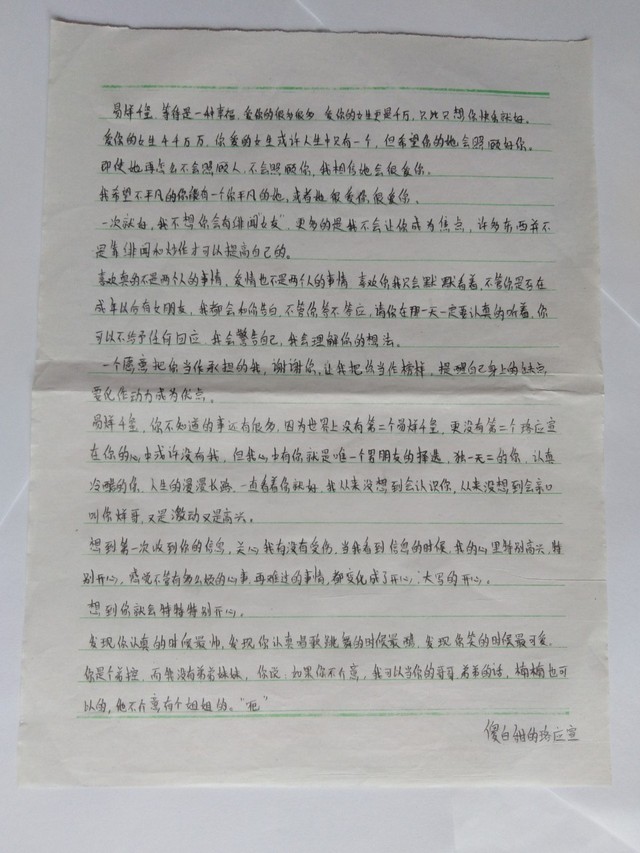 易烊千玺，等待是一种幸福，爱你的很多很多，爱你的女生更是千万，只
爱你的女生千千万万，你爱的女生或许人生中只有一个，但希望你的她会照顾好你。
即使她再怎么不会照顾人，不会照顾你，我相信她会很爱你。
我希望不平凡的你很有一个你平凡的她，或者她很爱你很爱你。
一次就好，我不想你会有绯闻"女友"，更多的是我不会让你成为焦点，许多东西并不
是靠绯闻和炒作才可以提高自己的。
喜欢真的不是两个人的事情，爱情也不是两个人的事情，喜欢你我只会默默看着，不管你是否在
成年以后有女朋友，我都会和你告白，不管你答不答应，请你在那一天一定要认真的听着，你
可以不给予任何回应，我会警告自己，我会理解你的想法。
一个愿意把你当作承担的我，谢谢你，让我把你当作榜样，提醒自己身上的缺点
变化作动力成为优点。
易烊千玺，你不知道的事还有很多，因为世界上没有第二个易烊千玺，更没有第二个珞应宣
在你的心中或许没有我，但我心中有你就是唯一个男朋友的择选，独一无二的你，认真
冷暖的你，人生的漫漫长路，一直看着你就好，我从来没想到会认识你，从来没想到会亲口
叫你烊哥，又是激动又是高兴。
想到第一次收到你的信息，关心我有没有受伤，当我看到信息的时候，我的心里特别高兴，特
别开心，感觉不管有多么烦的心事，再难过的事情，都变化成了开心；大写的开心。
想到你就会特特特别开心。
发现你认真的时候最帅，发现你认真唱歌跳舞的时候最，发现你笑的时候最可爱，
你是个弟控，而我没有弟弟妹妹，你说：如果你不介意，我可以当你的哥哥，弟弟的话，楠楠也可
以的，他不介意有个姐姐的。"
傻白甜的珞应宣